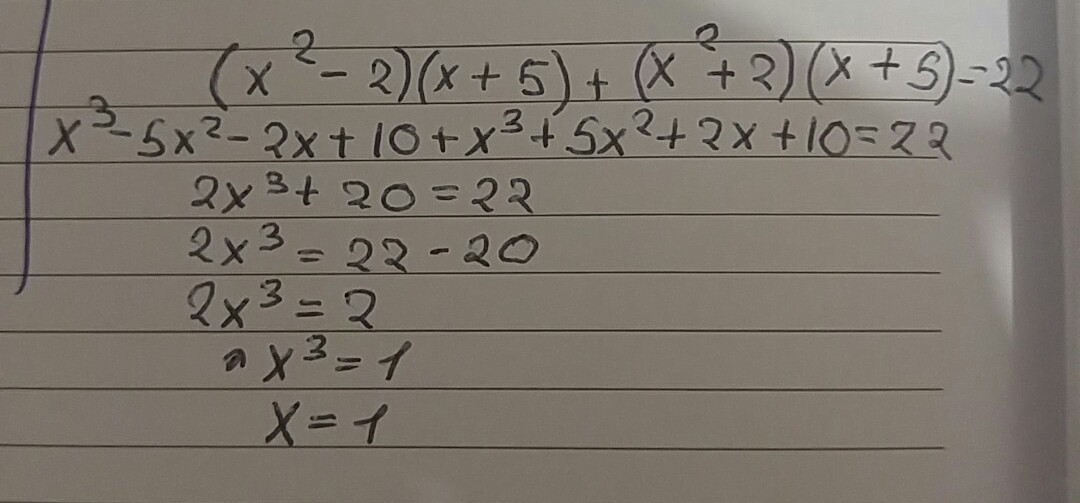 (x²-2)(x+5)+(x²+2)(x+5)=22
x³-5x²-2x+10+x³+5x²+2x+10=22
2x³+20=22
2x³=22-20
2x³=2
x³=1
x=1